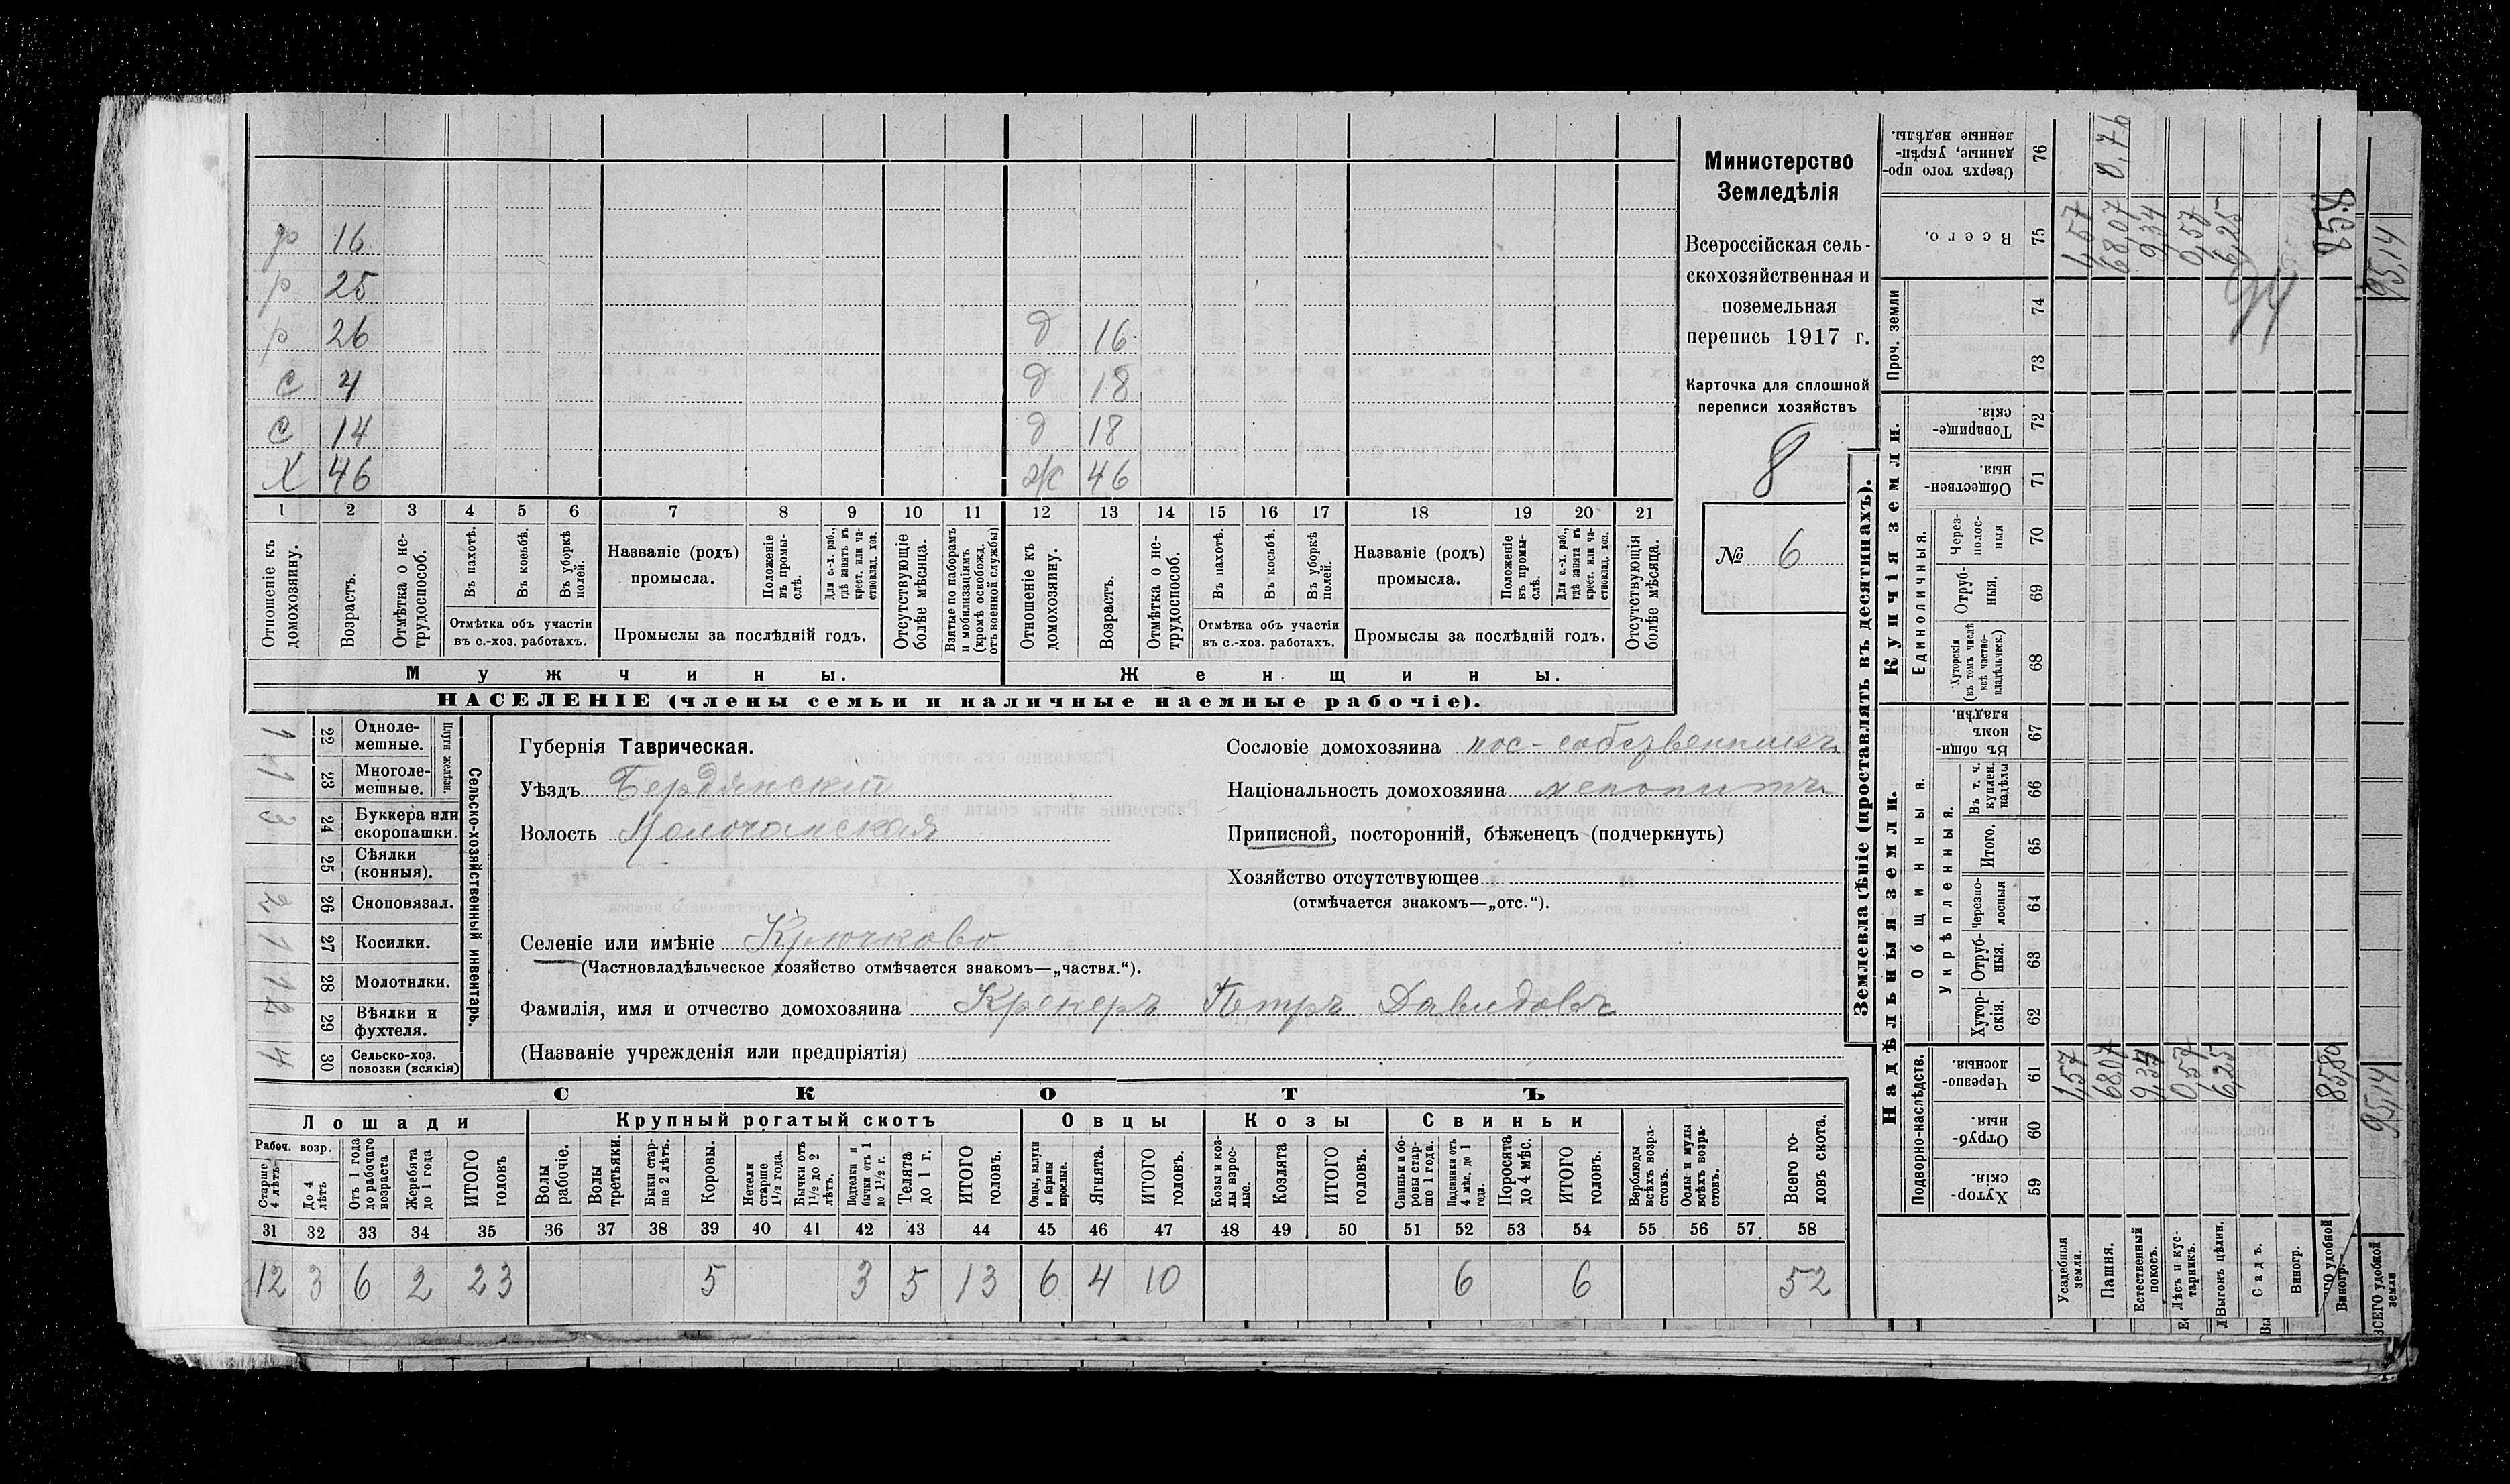 Министерство
Земледѣлія
Всероссійская сель-
скохозяйственная и
поземельная
перепись 1917 г.
Карточка для сплошной
переписи хозяйствъ
8
№ 6
р 16
р 25
р 26 д 16
с 4 д 18
с 14 д 18
Х 46 ж 46
1 2 3 4 5 6 7 8 9 10 11 12 13 14 15 16 17 18 19 20 21
Отношеніе къ домохозяину.
Возрастъ.
Отмѣтка о не-трудоспособ.
Въ пахотѣ.
Въ косьбѣ.
Въ уборкѣ полей.
Отмѣтка объ участіи
въ с.-хоз. работахъ.
Названіе (родъ)
промысла.
Положеніе въ промы-слѣ.
Для с.-х. раб., гдѣ занятъ въ крест. или ча-стновлад. хоз.
Промыслы за послѣдній годъ.
Отсутствующіе болѣе мѣсяца.
Взятые по наборамъ и мобилизаціямъ (кромѣ освобожд. отъ военной службы)
Отношеніе къ домохозяину.
Возрастъ.
Отмѣтка о не-трудоспособ.
Въ пахотѣ.
Въ косьбѣ.
Въ уборкѣ полей.
Отмѣтка объ участіи
въ с.-хоз. работахъ.
Названіе (родъ)
промысла.
Положеніе въ промы-слѣ.
Для с.-х. раб., гдѣ занята въ крест. или ча-стновлад. хоз.
Промыслы за послѣдній годъ.
Отсутствующія болѣе мѣсяца.
Мужчины. Женщины.
НАСЕЛЕНІЕ (члены семьи и наличные наемные рабочіе).
Сельско-хозяйственный инвентарь.
Плуги желѣзн.
22 Одноле-мешные. 1
23 Многоле-мешные. 1
24 Буккера или скоропашки. 3
25 Сѣялки (конныя).
26 Сноповязал. 2
27 Косилки. 1
28 Молотилки. 1
29 Вѣялки и фухтеля. 2
30 Сельско-хоз. повозки (всякія) 4
Губернія Таврическая.
Уѣздъ Бердянский
Волость Молочанская
Сословіе домохозяина пос-собственникъ
Національность домохозяина менонитъ
Приписной, посторонній, бѣженецъ (подчеркнуть)
Хозяйство отсутствующее
(отмѣчается знакомъ—„отс.“).
Селеніе или имѣніе Крючково
(Частновладѣльческое хозяйство отмѣчается знакомъ—„частвл.“).
Фамилія, имя и отчество домохозяина Крекеръ Петръ Давидовъ
(Названіе учрежденія или предпріятія)
СКОТЪ
Лошади Крупный рогатый скотъ Овцы Козы Свиньи
Рабоч. возр.
Старше 4 лѣтъ
До 4 лѣтъ
Отъ 1 года до рабочаго возраста
Жеребята до 1 года
ИТОГО головъ
Волы рабочіе.
Волы третьяки.
Быки стар-ше 2 лѣтъ.
Коровы.
Нетели старше 1½ года.
Бычки отъ 1½ до 2 лѣтъ.
Подтелки и бычки отъ 1 до 1½ г.
Телята до 1 г.
ИТОГО головъ.
Овцы, валухи и бараны взрослые.
Ягнята.
ИТОГО головъ.
Козы и коз-лы взрос-лые.
Козлята
ИТОГО головъ.
Свиньи и бо-ровы стар-ше 1 года.
Подсвинки отъ 4 мѣс. до 1 года.
Поросята до 4 мѣс.
ИТОГО головъ.
Верблюды всѣхъ возра-стовъ.
Ослы и мулы всѣхъ возра-стовъ.
Всего го-ловъ скота.
31 32 33 34 35 36 37 38 39 40 41 42 43 44 45 46 47 48 49 50 51 52 53 54 55 56 57 58
12 3 6 2 23 5 3 5 13 6 4 10 6 6 52
Землевладѣніе (проставлять въ десятинахъ).
Надѣльныя земли.
Купчія земли.
Проч. земли
Подворно-наслѣдств.
Общинныя.
Укрѣпленныя.
Единоличныя.
Хутор-скія. 59
Отруб-ныя. 60
Черезпо-лосныя. 61
Хутор-скія. 62
Отруб-ныя. 63
Черезпо-лосныя 64
Итого. 65
Въ т. ч. куплен. надѣлы 66
Въ общин-номъ владѣн. 67
Хуторскія (въ томъ числѣ всѣ частно-владѣльческ.) 68
Отруб-ныя. 69
Через-полос-ныя 70
Обществен-ныя. 71
Товарище-скія. 72
73
74
Всего. 75
Сверхъ того про-данные, укрѣп-ленные надѣлы. 76
Усадебныя земли. 1,57 1,57
Пашня. 68,07 68,07 0,76
Естественный покосъ. 9,34 9,34
Лѣсъ и кус-тарникъ. 0,57 0,57
Выгонъ цѣлин. 6,25 6,25
Садъ.
Виногр.
ГО удобной 85,80 858
Виногр.
ВСЕГО удобной земли 95,14 95,14
94